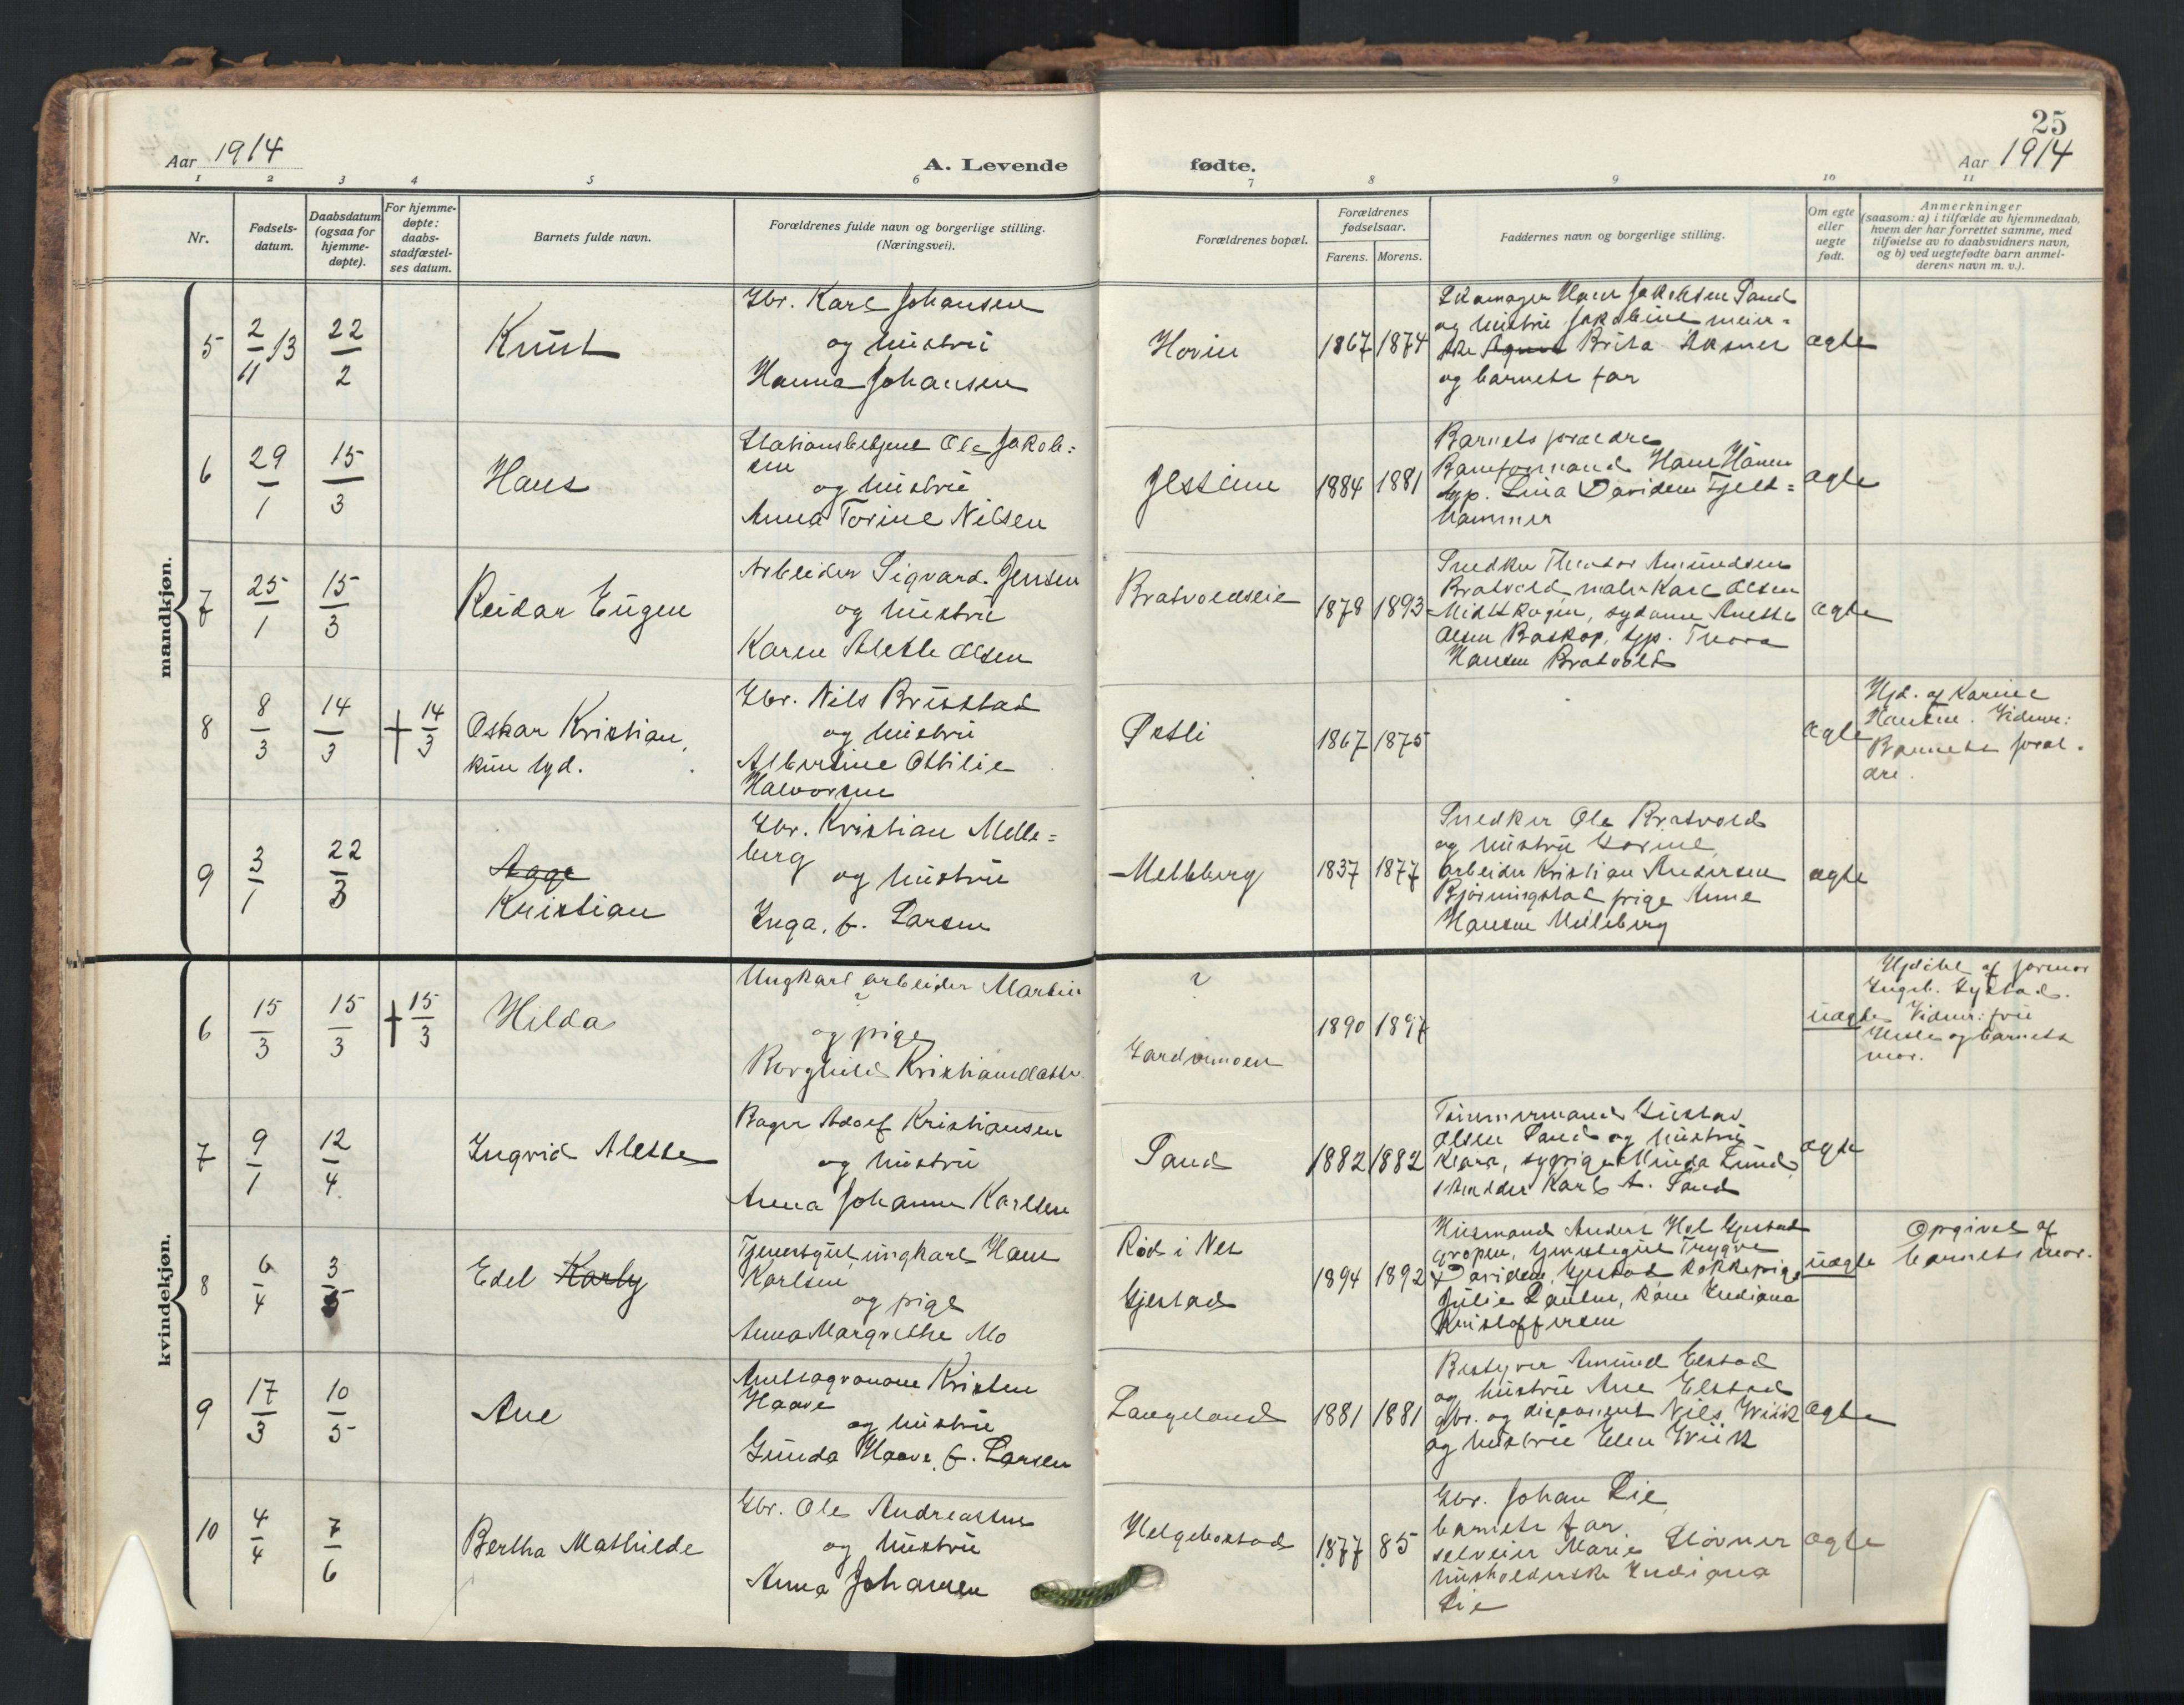 25
Aar 1914
A. Levende
fødte.
Aar 1914
1 2 3 4 5 6 7 8 9 10 11
Nr.
Fødsels-
datum.
Daabsdatum
(ogsaa for
hjemme-
døpte).
For hjemme-
døpte:
daabs-
stadfæstel-
ses datum.
Barnets fulde navn.
Forældrenes fulde navn og borgerlige stilling.
(Næringsvei).
Forældrenes bopæl.
Forældrenes
fødselsaar.
Farens. Morens.
Faddernes navn og borgerlige stilling.
Om egte
eller
uegte
født.
Anmerkninger
(saasom: a) i tilfælde av hjemmedaab,
hvem der har forrettet samme, med
tilføielse av to daabsvidners navn,
og b) ved uegtefødte barn anmel-
derens navn m. v.).
mandkjøn.
5
2/11 13
22/2
Knut
Gbr. Karl Johansen
og hustru
Hanna Johansen
Hovin
1867 1874
Skomager Hans Jakobsen Sand
og hustru Jakobine meier-
Brita Aasner
og barnets far
ægte
6
29/1
15/3
Hans
Stationsbetjent Ole Jakob=
sen
og hustru
Anna Torine Nilsen
Jessheim
1884 1881
Barnets forældre
Baneformand Hans Hansen
syp. Lina Davidsen Fjeld=
hammer
ægte
7
25/1
15/3
Reidar Eugen
Arbeider Sigvard Jensen
og hustru
Karen Alette Olsen
Bratvoldseie
1878 1893
Snedker Theodor Amundsen
Bratvold maler Karl Olsen
Midtskogen, sydame Anette
Olsen Baskop, syp. Thora
Hansen Bratvold
ægte
8
8/3
14/3
† 14/3
Oskar Kristian,
kun lyd.
Gbr. Nils Brustad
og hustru
Albertine Othilie
Halvorsen
Sætli
1867 1875
ægte
Hjd. af Karine
Hansen. Vidner:
Barnets foræl-
dre.
9
3/1
22/3
Aage
Kristian
Gbr. Kristian Melle=
berg
og hustru
Inga, f. Larsen
Melleberg
1837 1877
Snedker Ole Bratvold
og hustru Gorine
arbeider Kristian Andersen
Bjørningstad pige Anne
Hansen Melleberg
ægte
kvindekjøn.
6
15/3
15/3
† 15/3
Hilda
Ungkarl arbeider Martin
?
og pige
Borghild Kristiansdatter
?
Gardermoen
1890 1897
uægte
Hjdøbt af jormor
Ingeb. Gystad.
Vidner: fru
og barnets
mor.
7
9/1
12/4
Ingrid Alette
Bager Adolf Kristiansen
og hustru
Anna Johanne Karlsen
Sand
1882 1882
Tømmermand Gustav
Olsen Sand og hustru
Klara, sypige Minda Lund,
skrædder Karl A. Sand
ægte
8
6/4
3/5
Edel Karly
Tjenestgut, ungkarl Hans
Karlsen
og pige
Anna Margrethe Mo
Rød i Nes
Gjestad
1894 1892
Husmand Anders Hol Gjestad
gropen, tjenestegut Trygve
Davidsen, Gjestad kokkepige
Julie Paulsen, kone Indiana
Kristoffersen
uægte
Opgivet af
barnets mor.
9
17/3
10/5
Ane
Amtsagronom Kristen
Haave
og hustru
Gunda Haave, f. Larsen
Langeland
1881 1881
Bestyrer Amund Elstad
og hustru Ane Elstad
gbr. og disponent Nils Wiik
og hustru Elen Wiik
ægte
10
4/4
7/6
Bertha Mathilde
Gbr. Ole Andreassen
og hustru
Anna Johansen
Helgebostad
1877 85
Gbr. Johan Lie
barnets far.
selveier Marie Sløvner
husholderske Indiana
Lie
ægte